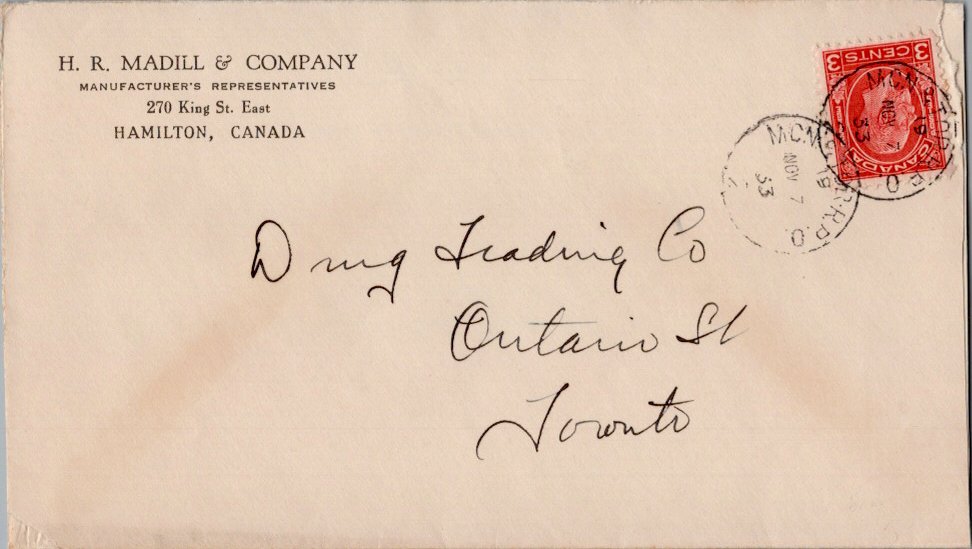 H. R. MADILL & COMPANY
MANUFACTURER'S REPRESENTATIVES
270 King St. East
HAMILTON, CANADA
3 CENTS 3
CANADA
NOV 7
33
19
MCN
NOV 7
33
19
R.P.O.
Drug Trading Co
Ontario St
Toronto